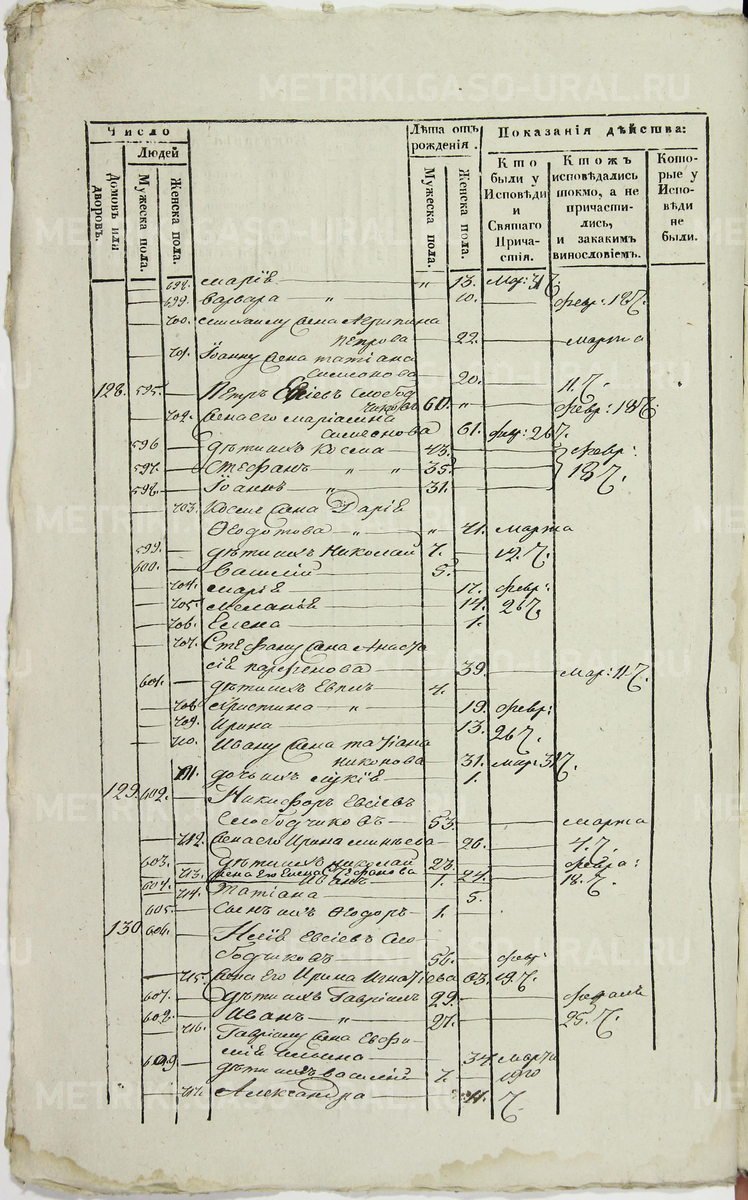 METRIKI.GASO-URAL.RU
Число
Лѣта отъ рожденія.
Показанія дѣйства:
Людей
Домовъ или дворовъ.
Мужеска пола.
Женска пола.
Мужеска пола.
Женска пола.
Кто были у Исповѣди и Святаго Причастія.
Ктожъ исповѣдались токмо, а не причастились, и закакимъ винословіемъ.
Которые у Исповѣди не были.
698. Маріѣ — „ 13. Мар:
699. Варвара „ 10. февр: 18
700. жена Агрипина
Петрова 22. Марта
701. Іоанну жена Татіана
Симеонова 20. 11.
128. 595. Петръ Евсіевъ Слобод
чиковъ 60. „ февр: 18
702. Жена его Маріамна
Симеонова 61. 26
596 дѣти ихъ Косма 43. февр:
597. Стефанъ „ „ 35. 18
598. Іоаннъ „ 31.
703. Космы жена Даріѣ
Ѳеодотова „ „ 41. Марта
599. дѣти ихъ Николай 7. 12
600. Василій 5.
704. Маріѣ 17. февр:
705. Меланьѣ 14. 26
706. Елена 1.
707. Стефану жена Анаста
сіѣ Парфенова 39. Мар: 11
601. дѣти ихъ 4.
708. Христина „ 19. февр:
709. Ирина 13. 26
710. Ивану жена Татіана
Никонова 31.
711. дочь ихъ Лукіѣ 1.
129. 602. Никифоръ Евсіевъ
Слободчиковъ 53. Марта
712. Жена его Ирина 26. 4.
603. дѣти ихъ Николай 23. февра:
713. жена его Елена Стефанова 24. 18.
604. Иванъ 1.
714. Татіана 5.
605. Сынъ ихъ Ѳеодоръ 1.
130 606. Евсіевъ Сло-
бодчиковъ 56. февр:
715. Жена его Ирина Игнатіева 63. 19.
607. дѣти ихъ Гавріилъ 29.
608. Иванъ „ 27. 25.
716. Гавріилу жена Евфи-
міѣ Ильина 34 Марта
609 дѣти ихъ Василій 7.
717. Александра 11.